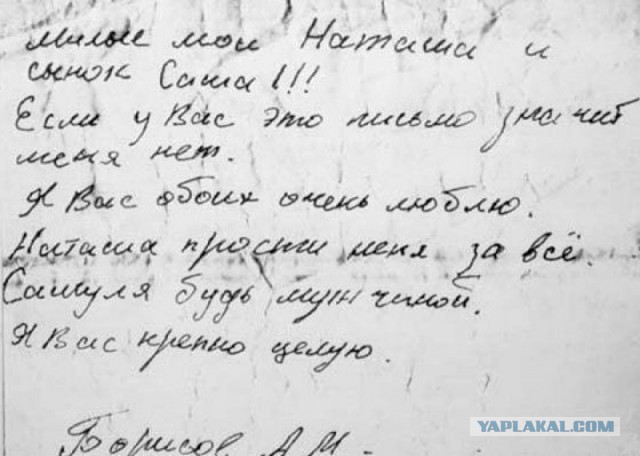 милые мои Наташа и
сынок Саша!!!
Если у Вас это письмо значит
меня нет.
Я Вас обоих очень люблю.
Наташа прости меня за всё.
Сашуля будь мужчиной.
Я Вас крепко целую.
Борисов А.М.
YAPLAKAL.COM